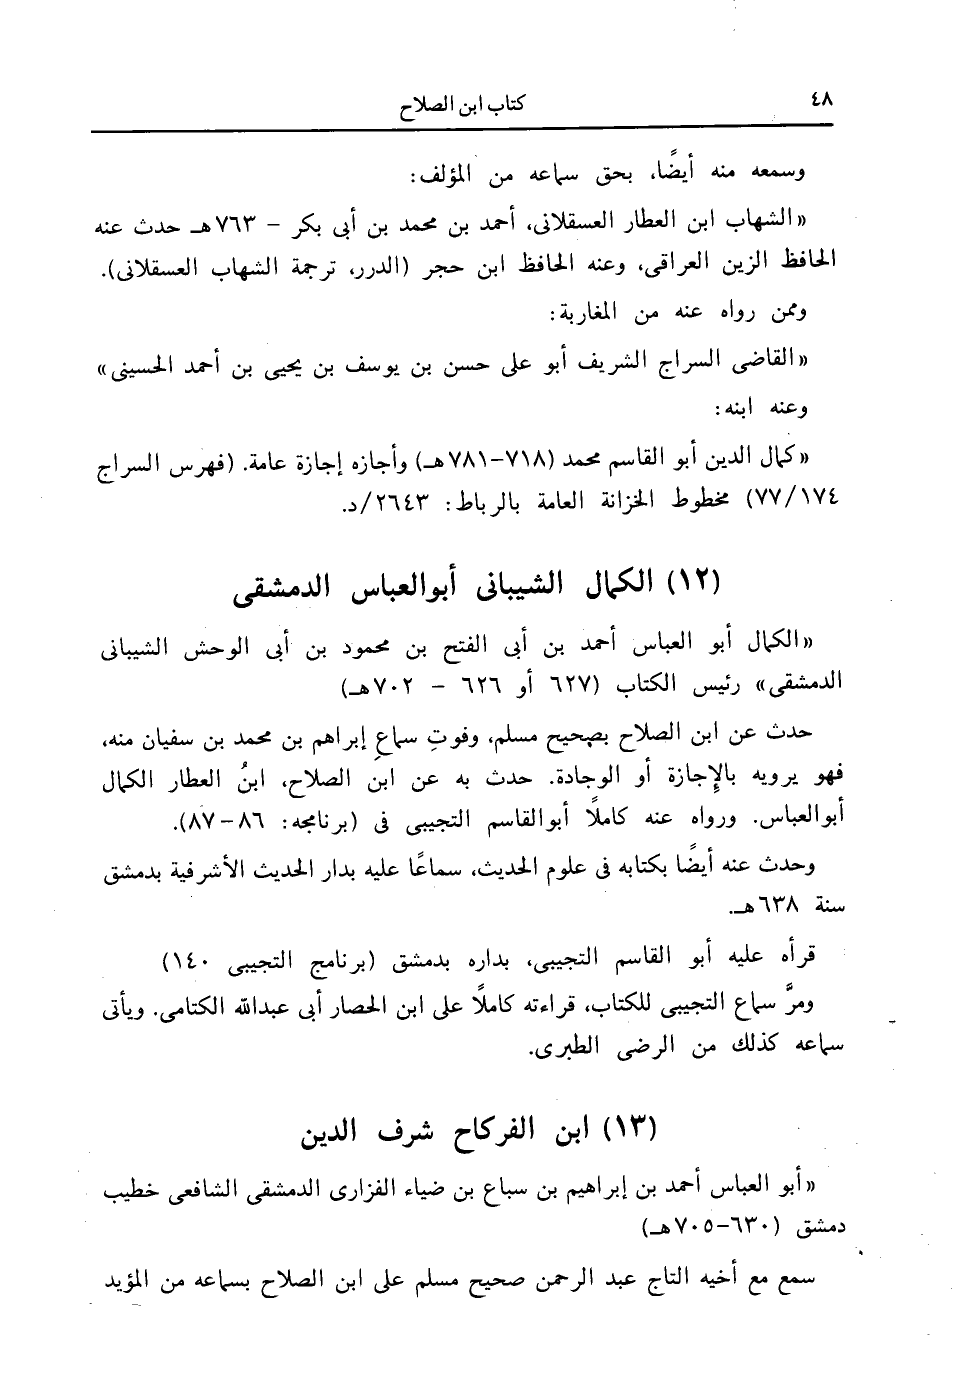 ٤٨
كتاب ابن الصلاح
وسمعه منه أيضًا، بحق سماعه من المؤلف:
«الشهاب ابن العطار العسقلانى، أحمد بن محمد بن أبى بكر – ٧٦٣هـ حدث عنه
الحافظ الزين العراقى، وعنه الحافظ ابن حجر (الدرر، ترجمة الشهاب العسقلانى).
وممن رواه عنه من المغاربة:
«القاضى السراج الشريف أبو على حسن بن يوسف بن يحيى بن أحمد الحسينى»
وعنه ابنه:
«كمال الدين أبو القاسم محمد (٧١٨–٧٨١هـ) وأجازه إجازة عامة. (فهرس السراج
٧٧/١٧٤) مخطوط الخزانة العامة بالرباط: ٢٦٤٣/د.
(١٢) الكمال الشيبانى أبوالعباس الدمشقى
«الكمال أبو العباس أحمد بن أبى الفتح بن محمود بن أبى الوحش الشيبانى
الدمشقى» رئيس الكتاب (٦٢٧ أو ٦٢٦ – ٧٠٢هـ)
حدث عن ابن الصلاح بصحيح مسلم، وفوتِ سماعِ إبراهم بن محمد بن سفيان منه،
فهو يرويه بالإجازة أو الوجادة. حدث به عن ابن الصلاح، ابنُ العطار الكمال
أبوالعباس. ورواه عنه كاملًا أبوالقاسم التجيبى فى (برنامجه: ٨٦–٨٧).
وحدث عنه أيضًا بكتابه فى علوم الحديث، سماعًا عليه بدار الحديث الأشرفية بدمشق
سنة ٦٣٨هـ.
قرأه عليه أبو القاسم التجيبى، بداره بدمشق (برنامج التجيبى ١٤٠)
ومرَّ سماع التجيبى للكتاب، قراءته كاملًا على ابن الحصار أبى عبدالله الكتامى. ويأتى
سماعه كذلك من الرضى الطبرى.
(١٣) ابن الفركاح شرف الدين
«أبو العباس أحمد بن إبراهيم بن سباع بن ضياء الفزارى الدمشقى الشافعى خطيب
دمشق (٦٣٠–٧٠٥هـ)
سمع مع أخيه التاج عبد الرحمن صحيح مسلم على ابن الصلاح بسماعه من المؤيد